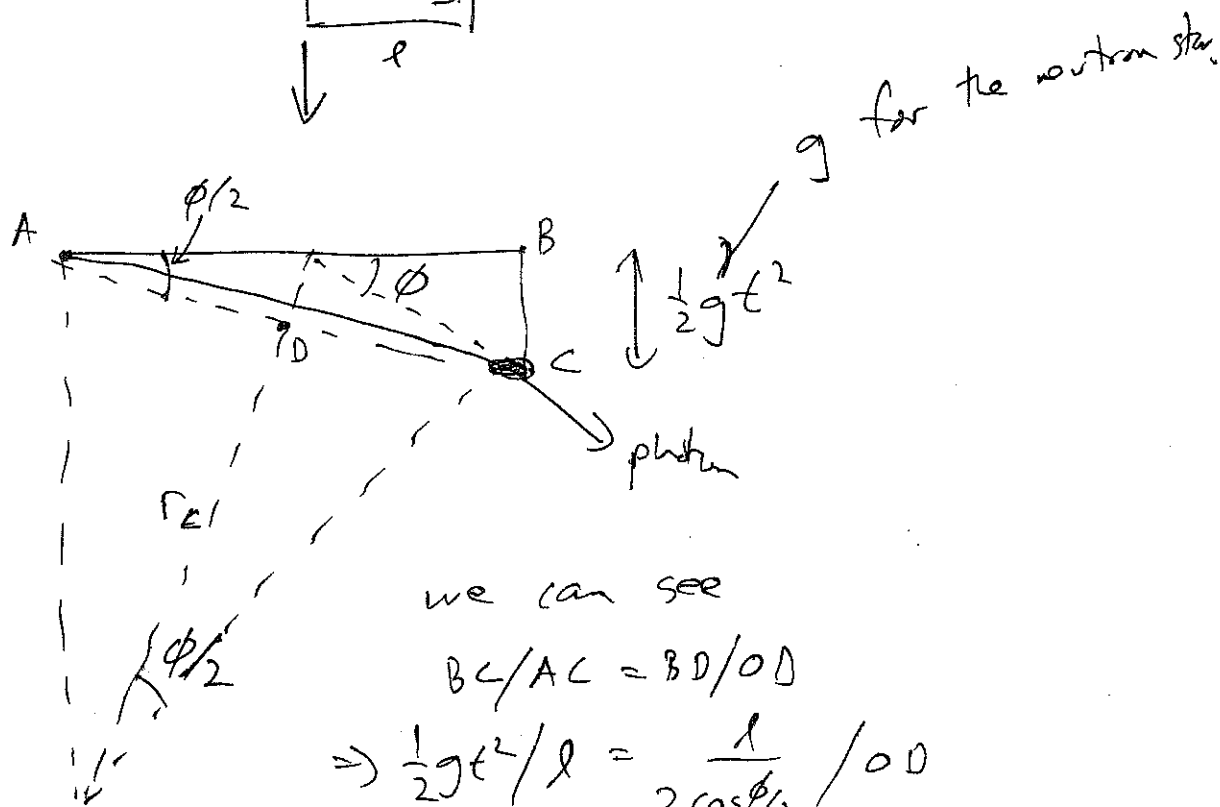 l
g for the neutron star.
φ/2
A
B
φ
1/2 gt²
D
C
photon
we can see
φ/2
BC/AC = BD/OD
=> 1/2 gt²/l = l/2cosφ/2 /OD